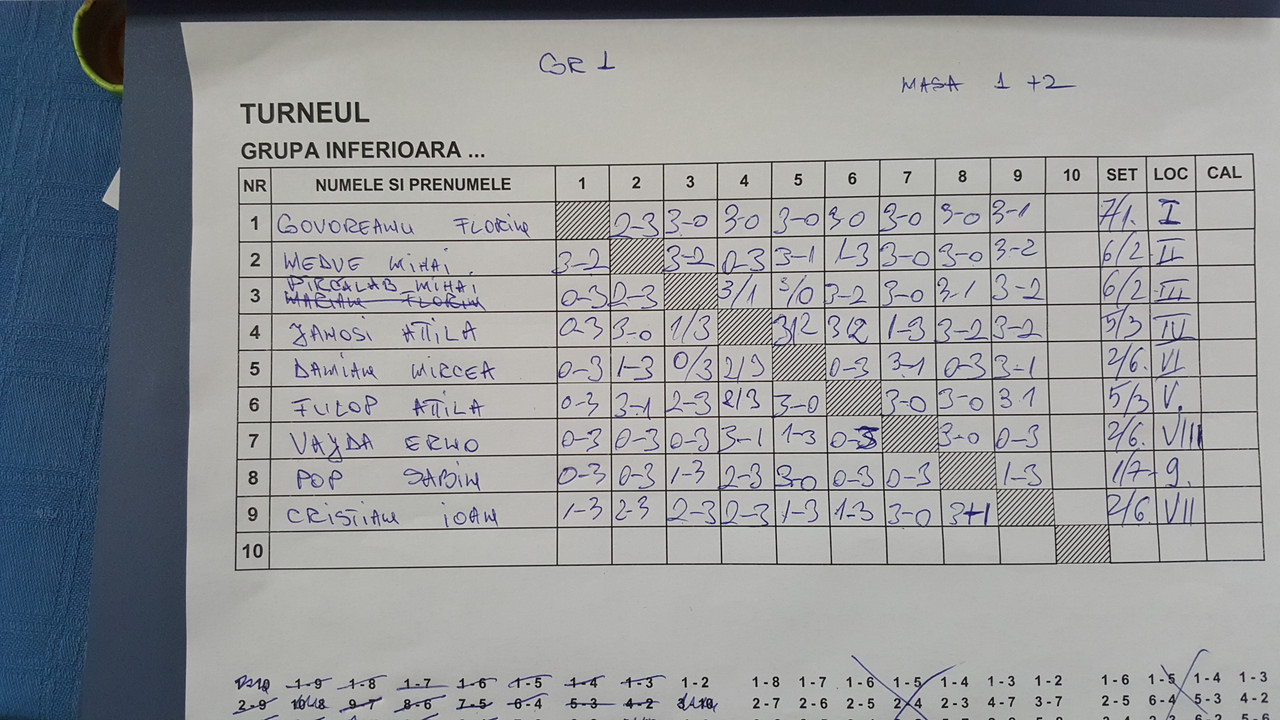 GR 1
MASA 1 +2
TURNEUL
GRUPA INFERIOARA ...
NR NUMELE SI PRENUMELE 1 2 3 4 5 6 7 8 9 10 SET LOC CAL
1 GOVOREANU FLORIN 2-3 3-0 3-0 3-0 3-0 3-0 3-0 3-1 7/1. I
2 MEDVE MIHAI. 3-2 3-2 0-3 3-1 1-3 3-0 3-0 3-2 6/2 II
PIRCALAB MIHAI
3 MARIAN FLORIN 0-3 2-3 3/1 3/0 3-2 3-0 3-1 3-2 6/2 III
4 JANOSI ATTILA 0-3 3-0 1/3 3/2 3/2 1-3 3-2 3-2 5/3 IV
5 DAMIAN MIRCEA 0-3 1-3 0/3 2/3 0-3 3-1 0-3 3-1 2/6. VI
6 FULOP ATTILA 0-3 3-1 2-3 2/3 3-0 3-0 3-0 3-1 5/3 V.
7 VAJDA ERNO 0-3 0-3 0-3 3-1 1-3 0-3 3-0 0-3 2/6. VIII
8 POP SABIN 0-3 0-3 1-3 2-3 3-0 0-3 0-3 1-3 1/7 9.
9 CRISTIAN IOAN 1-3 2-3 2-3 2-3 1-3 1-3 3-0 3-1 2/6. VII
10
1-9 1-8 1-7 1-6 1-5 1-4 1-3 1-2 1-8 1-7 1-6 1-5 1-4 1-3 1-2 1-6 1-5 1-4 1-3
2-9 9-7 8-6 7-5 6-4 5-3 4-2 2-7 2-6 2-5 2-4 2-3 4-7 3-7 2-5 6-4 5-3 4-2